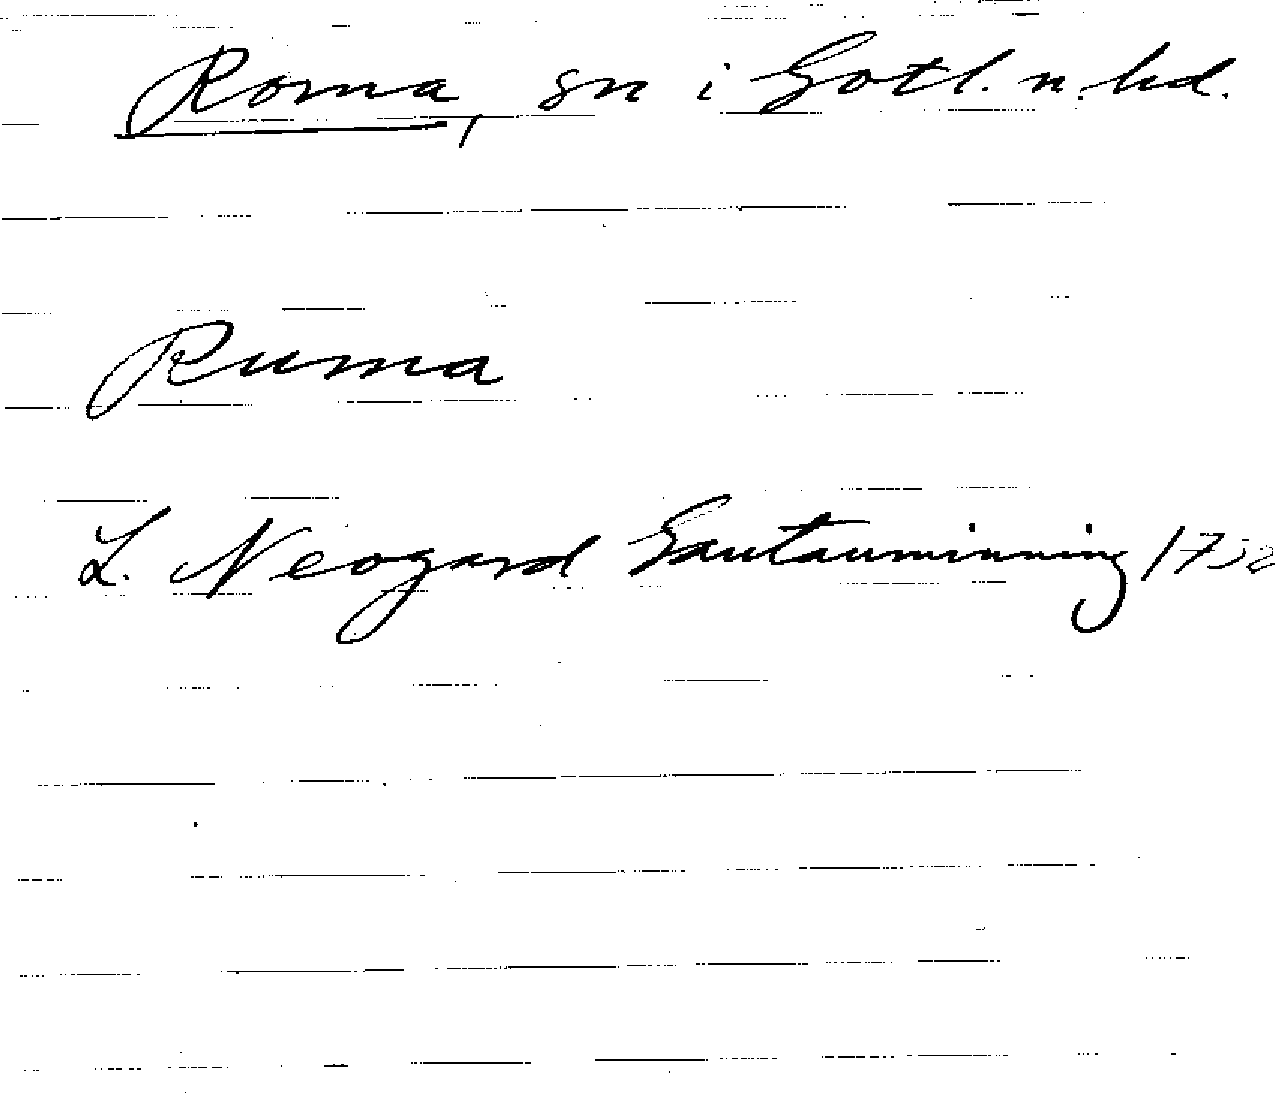 Roma, sn i Gotl. n. hd.
Ruma
L. Neogard Gautauminning 1732